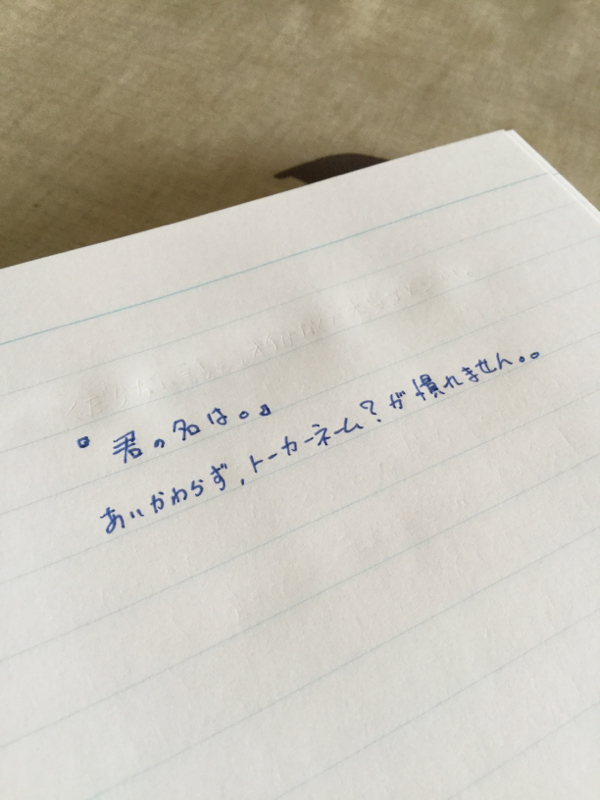 『君の名は。』
あいかわらず、トーカーネーム?が慣れません。。